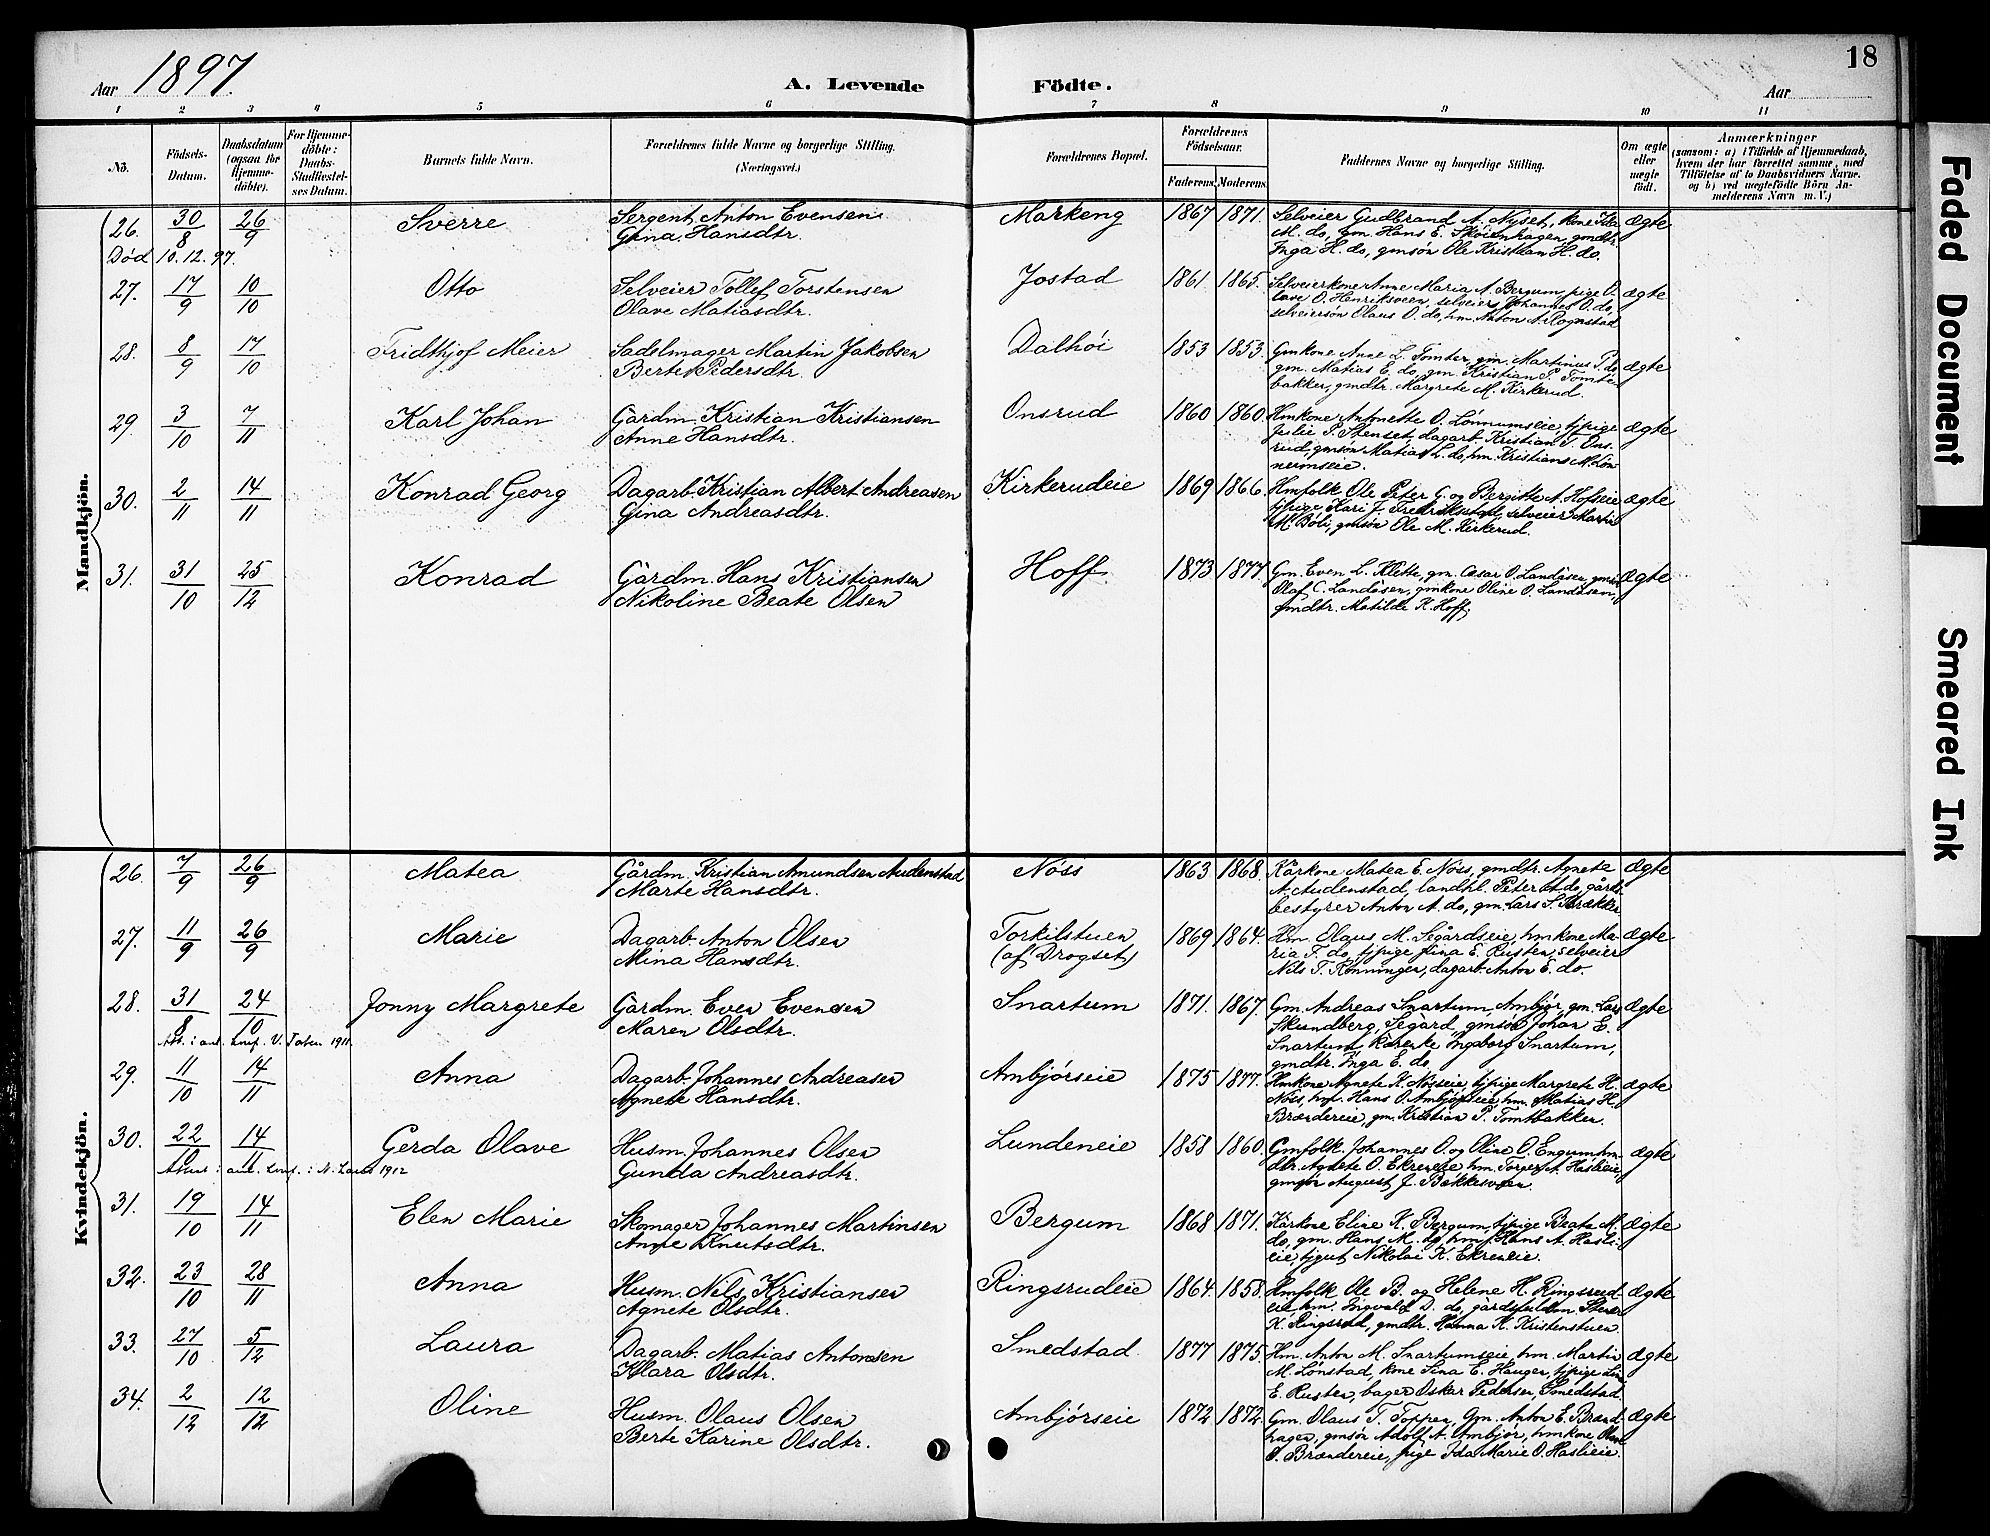 18
Aar 1897.
A. Levende Födte.
Aar
1 2 3 4 5 6 7 8 9 10 11
No.
Födsels-Datum.
Daabsdatum (ogsaa for Hjemmedöbte).
For Hjemmedöbte: Daabs-Stadfæstelses Datum.
Barnets fulde Navn.
Forældrenes fulde Navne og borgerlige Stilling. (Næringsvei.)
Forældrenes Bopæl.
Forældrenes Födselsaar.
Faderens. Moderens.
Faddernes Navne og borgerlige Stilling.
Om ægte eller uægte födt.
Anmærkninger
(saasom: a) i Tilfælde af Hjemmedaab, hvem der har forrettet samme, med Tilföielse af to Daabsvidners Navne. og b) ved uægtefödte Börn Anmelderens Navn m. V.)
Mandkjön.
26. 30/8 26/9 Sverre Sergent Anton Evensen Markeng 1867 1871. Selveier Gudbrand A. Nyset, kone Ida ægte
Gina Hansdtr. M. do, gm. Hans E. Sköienhagen, gmdtr.
Död 10.12.97. Inga H. do, gmsön Ole Kristian H. do.
27. 17/9 10/10 Otto Selveier Tollef Torstensen Jostad 1861. 1865. Selveierkone Anne Maria A. Bergum, pige O- ægte
Olave Matiasdtr. lave O. Henriksveen, selveier Johannes O. do,
selveiersön Olaus O. do, hm. Anton A. Rognstad
28. 8/9 17/10 Fridthjof Meier Sadelmager Martin Jakobsen Dalhöi 1853 1853. Gmkone Anne L. Tomter, gm. Martinus P. do ægte
Berte Pedersdtr. gm. Matias E. do, gm. Kristian P. Tomte-
bakken, gmdtr. Margrete M. Kirkerud.
29. 3/10 7/11 Karl Johan Gårdm. Kristian Kristiansen Onsrud 1860 1860. Hmkone Antonette O. Lönnumseie, tjpige ægte
Anne Hansdtr. Julie P. Stenset, dagarb. Kristian T. Ons-
rud, gmsön Matias L. do, hm. Kristians M. Lön-
numseie.
30. 2/11 14/11 Konrad Georg Dagarb. Kristian Albert Andreasen Kirkerudeie 1869 1866. Hmfolk Ole Peter G. og Bergitte A. Hofseie, ægte
Gina Andreasdtr. tjpige Kari J. Fredrikstad, selveier Martin
M. Böli, gmsön Ole M. Kirkerud.
31. 31/10 25/12 Konrad Gårdm. Hans Kristiansen Hoff 1873 1877. Gm. Even L. Klette, gm. Cæsar O. Landåsen, gmsön ægte
Nikoline Beate Olsen Olaf C. Landåsen, gmkone Oline O. Landåsen,
gmdtr. Matilde K. Hoff.
Kvindekjön.
26. 7/9 26/9 Matea Gårdm. Kristian Amundsen Audenstad Nöss 1863 1868. Kårkone Matea E. Nöss, gmdtr. Agnete ægte
Marte Hansdtr. A. Audenstad, landhl. Peter A. do, gårds-
bestyrer Anton A. do, gm. Lars S. Krækker
27. 11/9 26/9 Marie Dagarb. Anton Olsen Torkilstuen 1869 1864. Hm. Olaus M. Segårdseie, hmkone Ma- ægte
Mina Hansdtr. (af Drogset) ria F. do, tjpige Lina E. Rusten, selveier
Nils T. Rönningen, dagarb. Anton E. do.
28. 31/8 24/10 Jonny Margrete Gårdm. Even Evensen Snartum 1871. 1867. Gm. Andreas Snartum, Ambjör, gm. Lars ægte
Maren Olsdtr. Skundberg, Segård, gmsön Johan E.
Att.: anl. konf. V. Toten 1911. Snartum, kårenke Ingeborg Snartum,
gmdtr. Inga E. do
29. 11/10 14/11 Anna Dagarb. Johannes Andreasen Ambjörseie 1875 1877. Hmkone Agnete K. Nösseie, tjpige Margrete H. ægte
Agnete Hansdtr. Nöss, hm. Hans O. Ambjörseie, hm. Matias H.
Brændereie, gm. Kristian P. Tomtbakken.
30. 22/10 14/11 Gerda Olave Husm. Johannes Olsen Lundeneie 1858 1860. Gmfolk Johannes O. og Oline O. Engum, hm- ægte
Gunda Andreasdtr. dtr. Agnete O. Ekreneie, hm. Torger A. Haslieie,
Attest: anl. konf.: N. Land 1912 gmsön August J. Bakkesveen.
31. 19/10 14/11 Elen Marie Skomager Johannes Martinsen Bergum 1868 1871. Kårkone Eline K. Bergum, tjpige Beate M. ægte
Anne Knutsdtr. do, gm. Hans M. do, hm. Hans A. Hasli-
eie, tjgut Nikolai K. Ekreneie.
32. 23/10 28/11 Anna Husm. Nils Kristiansen Ringsrudeie 1864. 1858. Hmfolk Ole B. og Helene H. Ringsrud- ægte
Agnete Olsdtr. eie, hm. Ingvald D. do, gårdsfuldm.
K. Ringsrud, gmdtr. Hanna K. Kristenstuen.
33. 27/10 5/12 Laura Dagarb. Matias Antonsen Smedstad. 1877 1875. Hm. Anton M. Snartumseie, hm. Martin ægte
Klara Olsdtr. M. Lönstad, kone Sina E. Haugen, tjpige Lina
E. Rusten, bager Oskar Pedersen, Smedstad.
34. 2/12 12/12 Oline Husm. Olaus Olsen Ambjörseie 1872 1872. Gm. Olaus T. Toppen, Gm. Anton E. Brænd- ægte
Berte Karine Olsdtr. hagen, gmsön Adolf A. Ambjör, hmkone Olave
O. Brændereie, pige Ida Marie O. Haslieie.
Faded Document
Smeared Ink